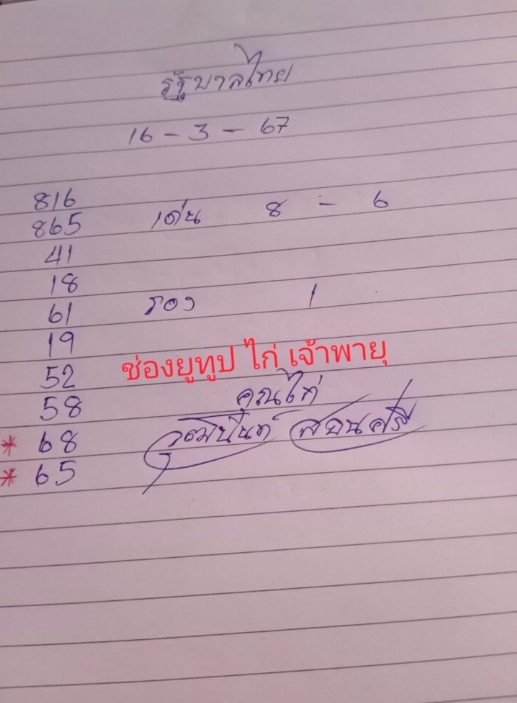 รัฐบาลไทย
16 - 3 - 67
816
865 เด่น 8 - 6
41
18
61 รอง 1
19
52 ช่องยูทูป ไก่ เจ้าพายุ
58 คุณไก่
* 68 วุฒินันท์ สอนศรี
* 65